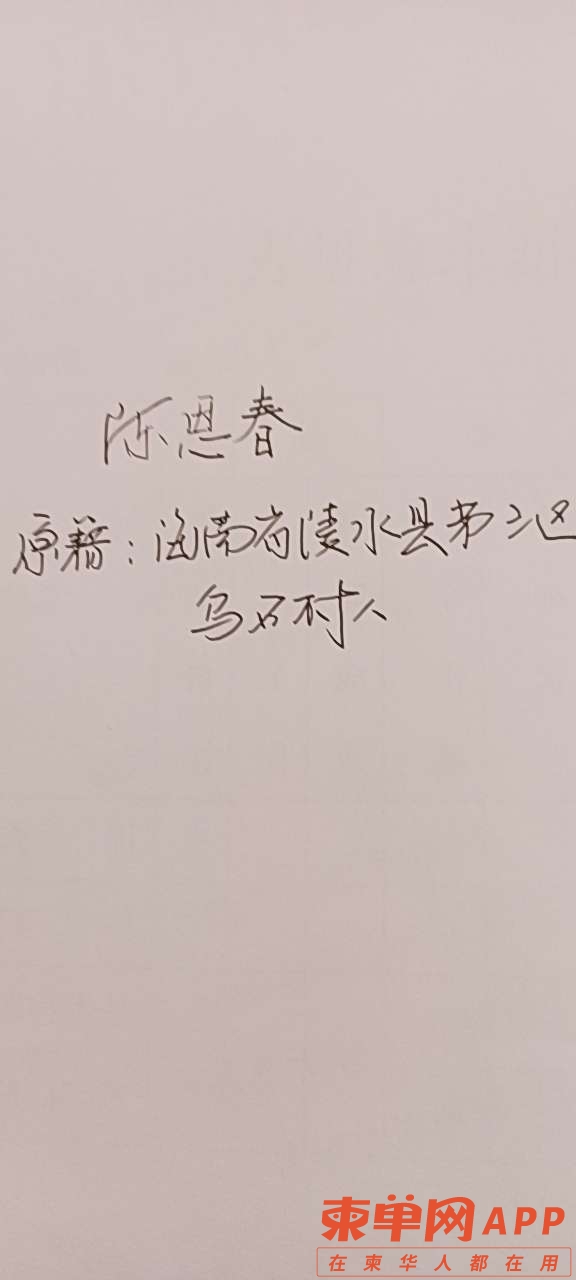 陈恩春
原籍：海南省陵水县第三区
乌石村人
柬单网APP
在柬华人都在用